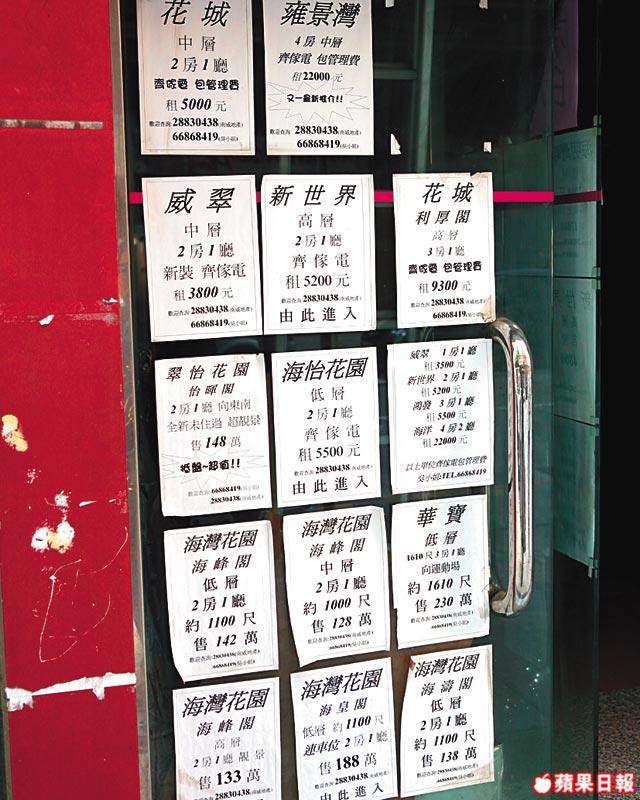 花城
中層
2房1廳
齊傢電 包管理費
租5000元
歡迎查詢:28830438(南威地產)
66868419(吳小姐)
雍景灣
4房 中層
齊傢電 包管理費
租22000元
又一最新推介!!
歡迎查詢:28830438(南威地產)
66868419(吳小姐)
威翠
中層
2房1廳
新裝 齊傢電
租3800元
歡迎查詢:28830438(南威地產)
66868419(吳小姐)
新世界
高層
2房1廳
齊傢電
租5200元
歡迎查詢:28830438(南威地產)
66868419(吳小姐)
由此進入
花城
利厚閣
高層
3房1廳
齊傢電 包管理費
租9300元
歡迎查詢:28830438(南威地產)
66868419(吳小姐)
翠怡花園
怡暉閣
2房1廳 向東南
全新未住過 超靚景
售148萬
抵盤~超值!!
歡迎查詢:66868419(吳小姐)
28830438(南威地產)
海怡花園
低層
2房1廳
齊傢電
租5500元
歡迎查詢:28830438(南威地產)
66868419(吳小姐)
由此進入
威翠 1房1廳
租3500元
新世界 2房1廳
租5200元
鴻發 3房1廳
租5500元
海洋 4房2廳
租22000元
以上單位齊傢電包管理費
吳小姐:TEL.66868419
海灣花園
海峰閣
低層
2房1廳
約1100尺
售142萬
歡迎查詢:28830438(南威地產)
66868419(吳小姐)
海灣花園
海峰閣
中層
2房1廳
約1000尺
售128萬
歡迎查詢:28830438(南威地產)
66868419(吳小姐)
華寶
低層
1610尺3房1廳
向運動場
約1610尺
售230萬
歡迎查詢:28830438(南威地產)
66868419(吳小姐)
海灣花園
海峰閣
高層
2房1廳 靚景
售133萬
歡迎查詢:28830438(南威地產)
66868419(吳小姐)
海灣花園
海皇閣
低層 約1100尺
連車位2房1廳
售188萬
歡迎查詢:28830438(南威地產)
66868419(吳小姐)
由此進入
海灣花園
海濤閣
低層
2房1廳
約1100尺
售138萬
歡迎查詢:28830438(南威地產)
66868419(吳小姐)
蘋果日報